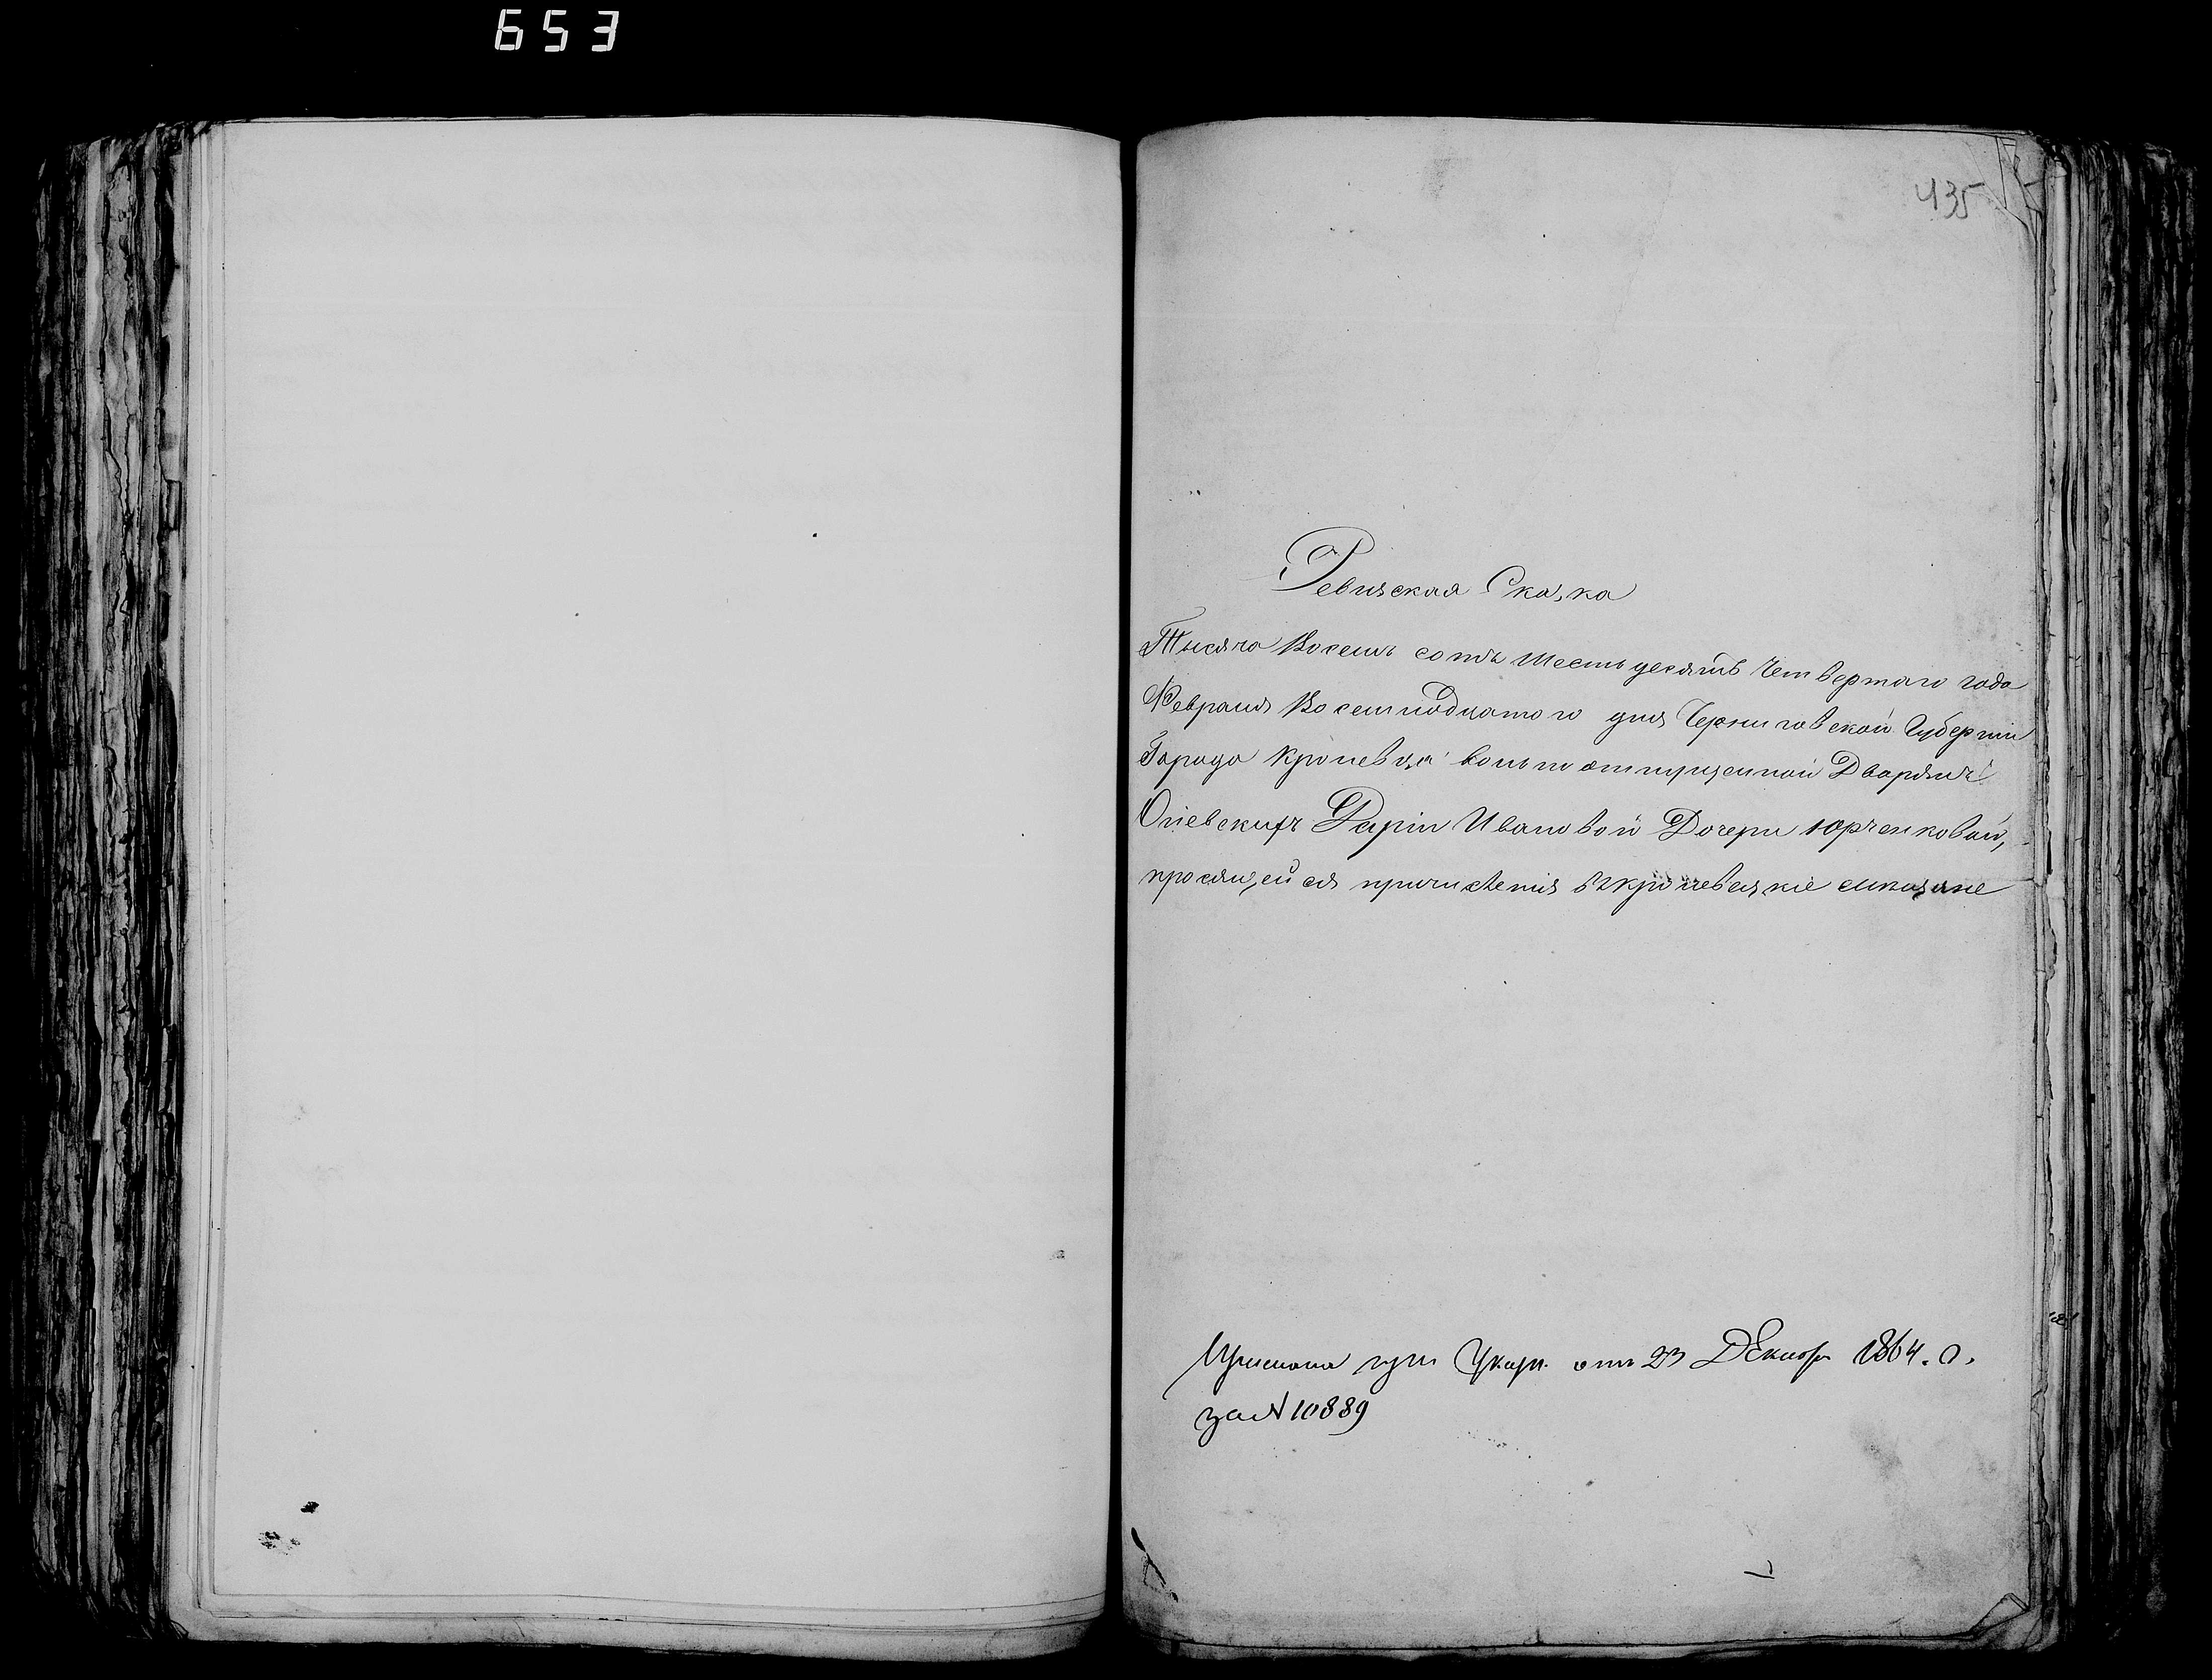 653
435
Ревизская Сказка
Тысяча Восемь сотъ шестьдесятъ Четвертаго года
Февраля Восемнадцатого дня Черниговской Губерніи
Города Кролевца вольноотпущенной Дворянъ
Огіевскихъ Дарьи Ивановой Дочери Юрченковой,
просящейся причисленія въ кролевецкіе мещане
при Указѣ отъ 23 Декабря 1864. г.
за № 10889